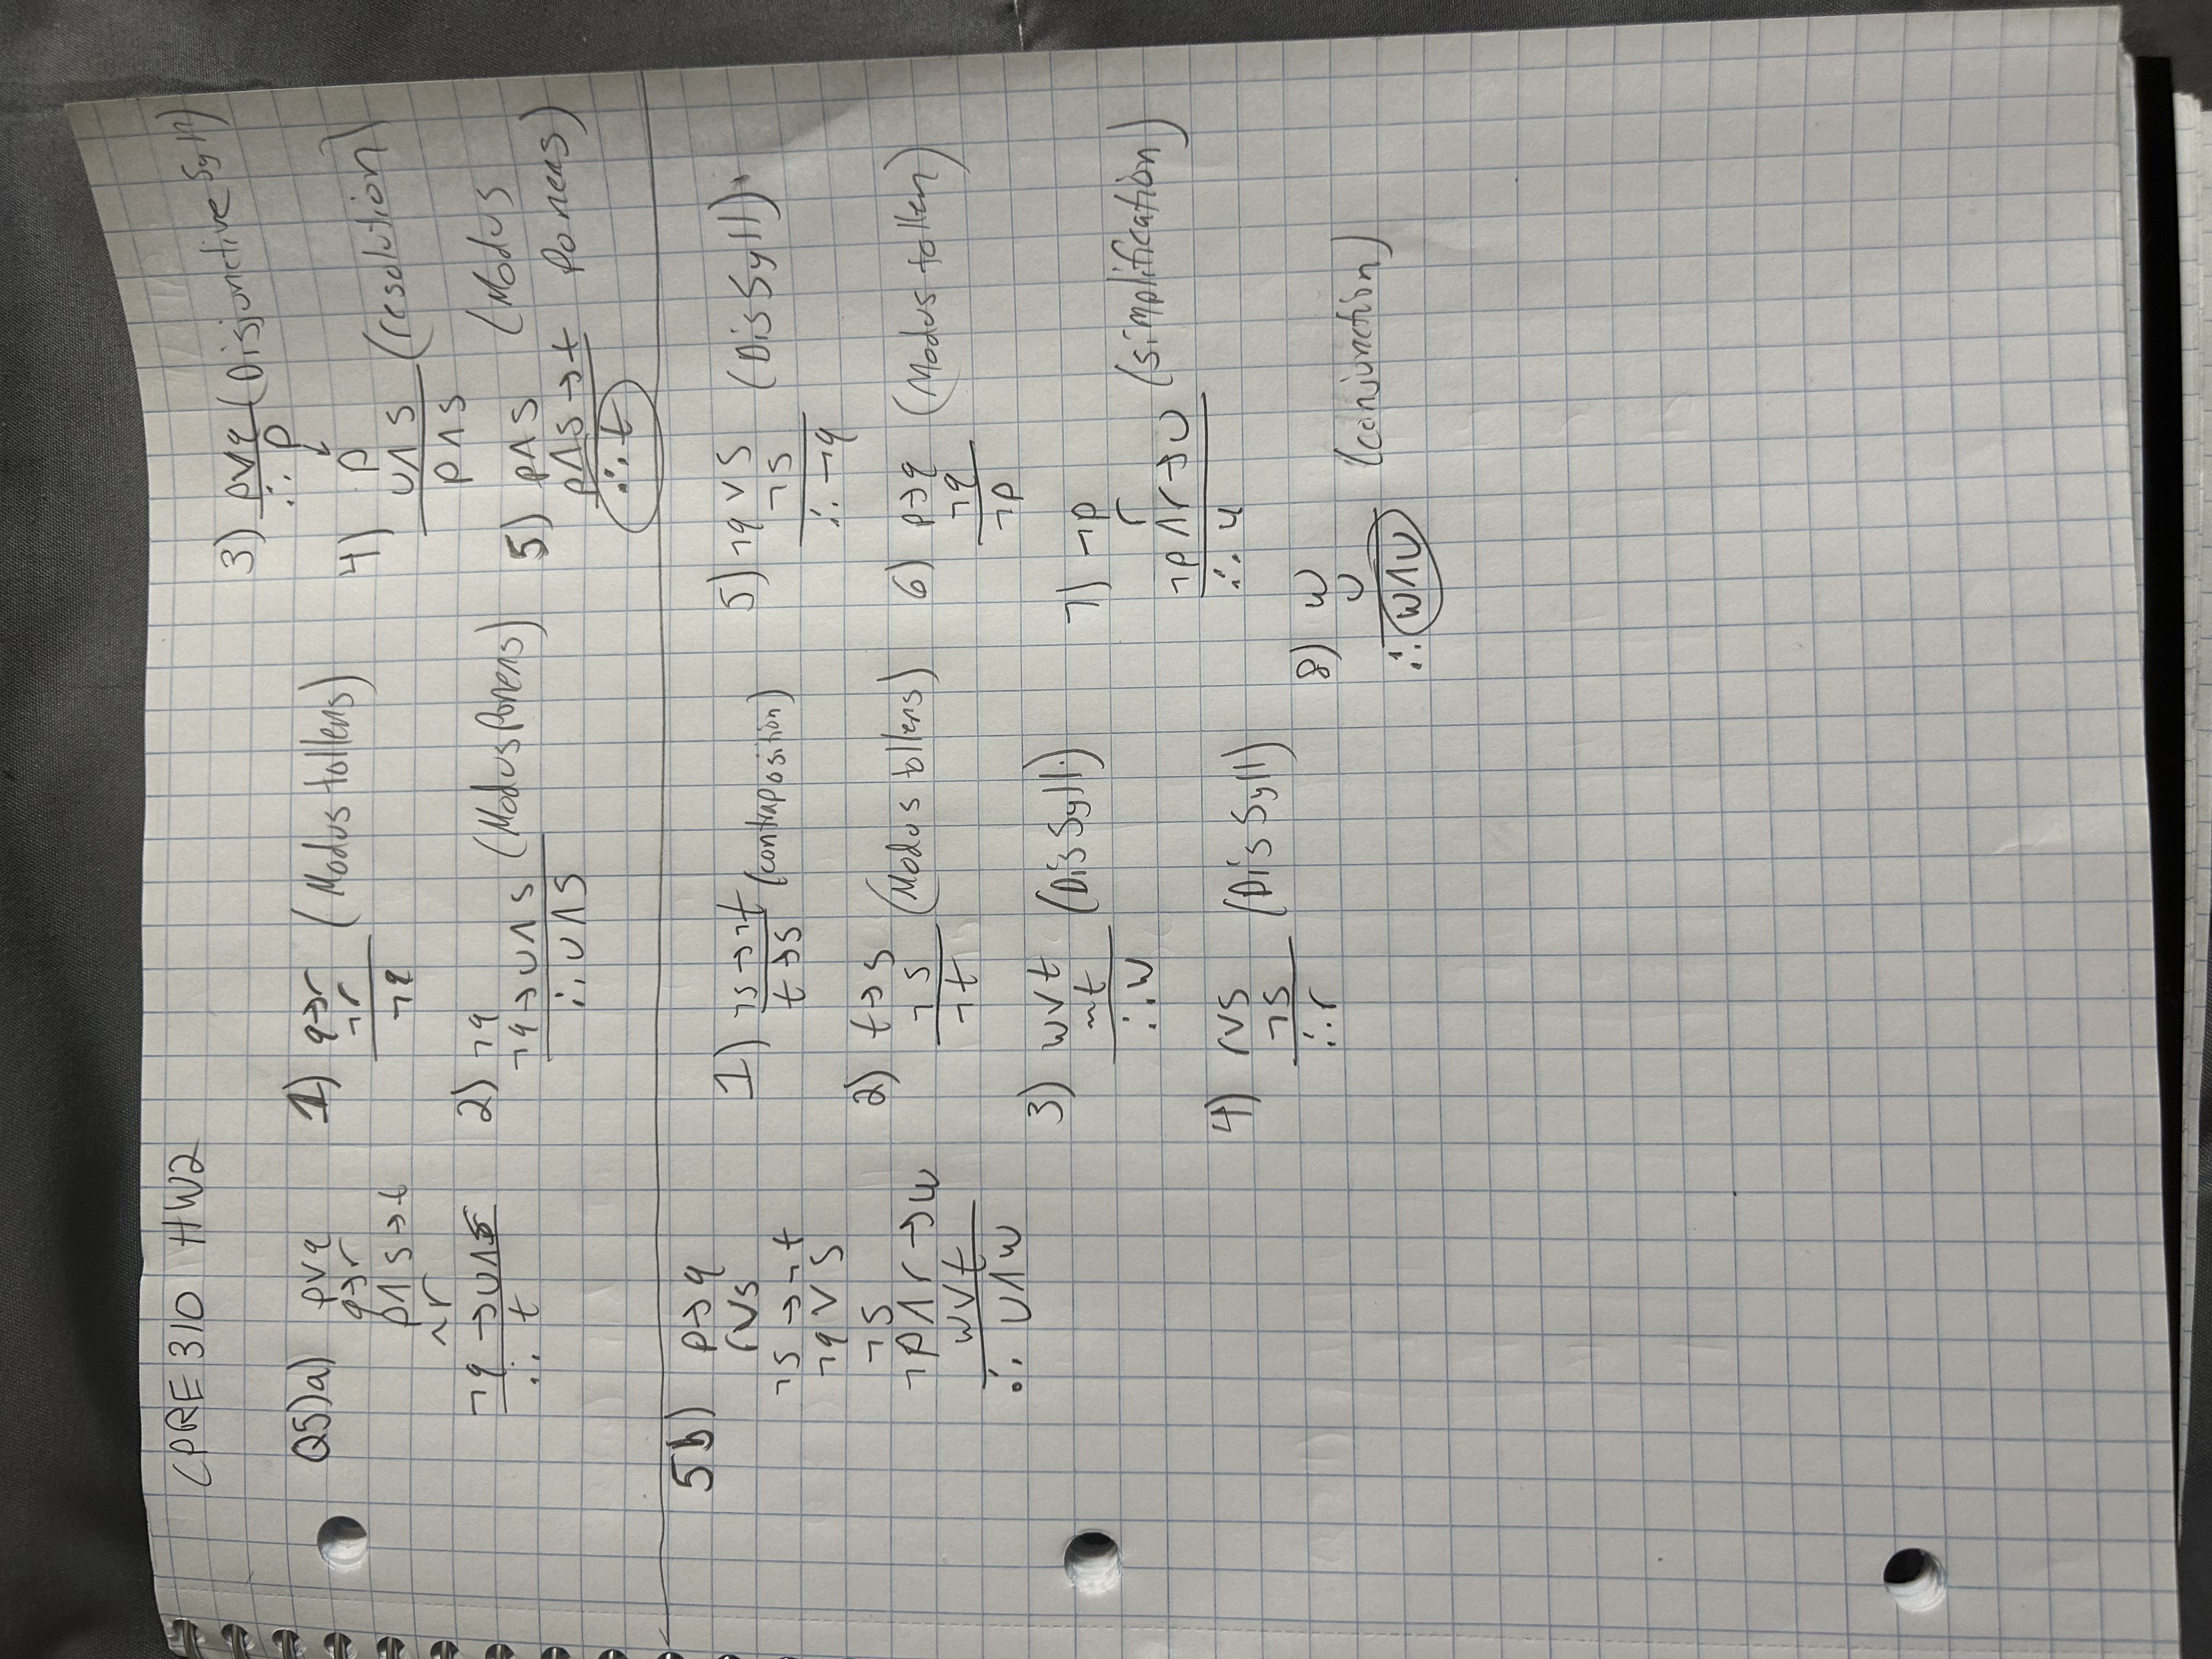 CPRE 310 HW2
Q5)a) p∨q
q→r
p∧s→t
~r
¬q→u∧s
∴ t
1) q→r (Modus tollens)
¬r
¬q
2) ¬q
¬q→u∧s (Modus Ponens)
∴ u∧s
3) p∨q (Disjunctive Syll)
∴ p
4) p
u∧s (resolution)
p∧s
5) p∧s (Modus
p∧s→t Ponens)
∴ t
5b) p→q
r∨s
¬s→¬t
¬q∨s
¬s
¬p∧r→w
w∨t
∴ u∧w
1) ¬s→¬t
t→s (contraposition)
2) t→s
¬s (Modus tollens)
¬t
3) w∨t (Dis Syll.)
~t
∴ w
4) r∨s
¬s (Dis Syll)
∴ r
5) ¬q∨s (Dis Syll).
¬s
∴ ¬q
6) p→q (Modus tollen)
¬q
¬p
7) ¬p
r
¬p∧r→u (simplification)
∴ u
8) w
u (conjunction)
∴ w∧u